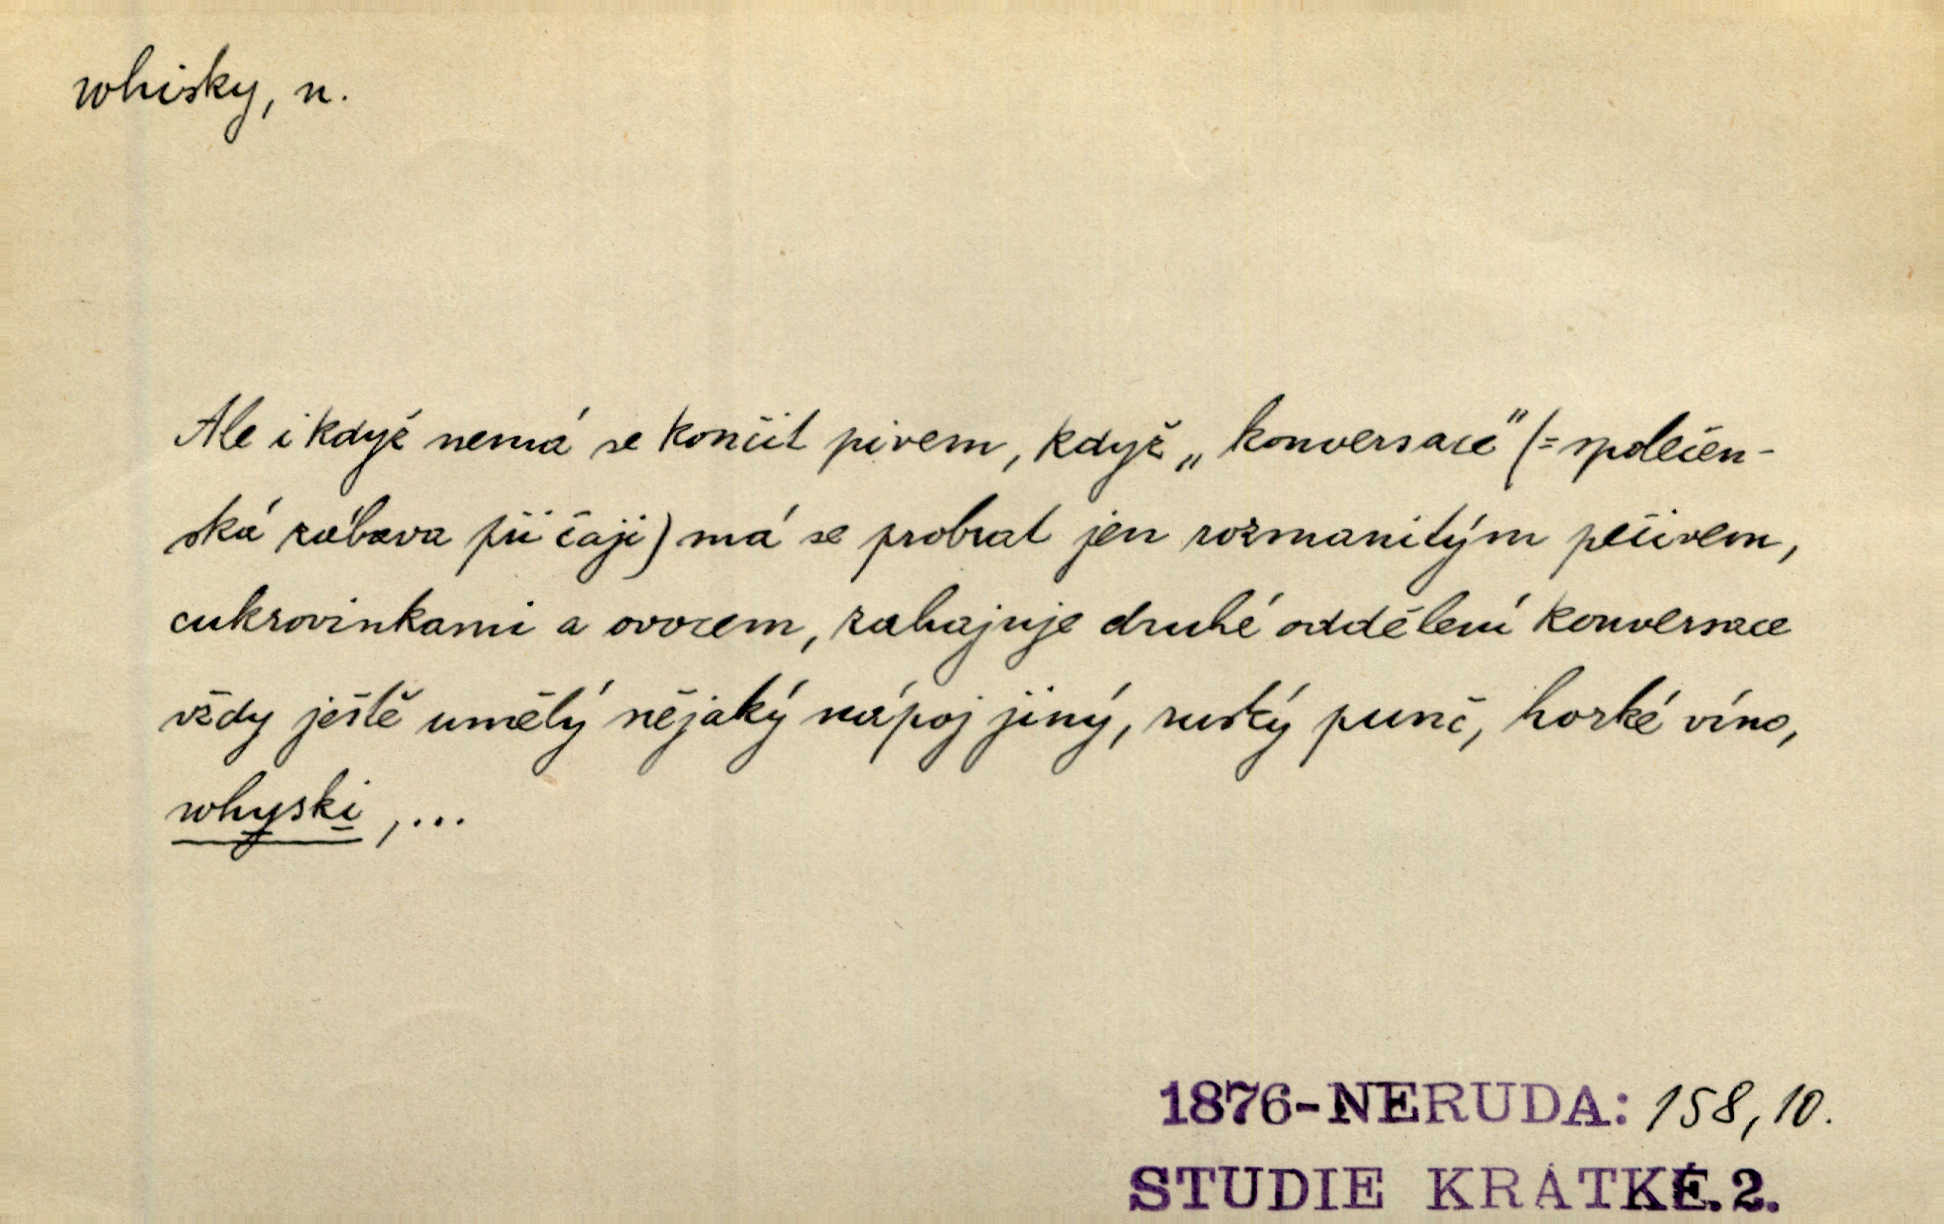 whisky, n.
Ale i když nemá se končit pivem, když „konversací" (= společen-
ská zábava při čaji) má se probrat jen rozmanitým pečivem,
cukrovinkami a ovocem, zahajuje druhé oddělení konversace
vždy ještě umělý nějaký nápoj jiný, ruský punč, horké víno,
whyski, ...
1876-NERUDA: 158, 10.
STUDIE KRÁTKÉ. 2.